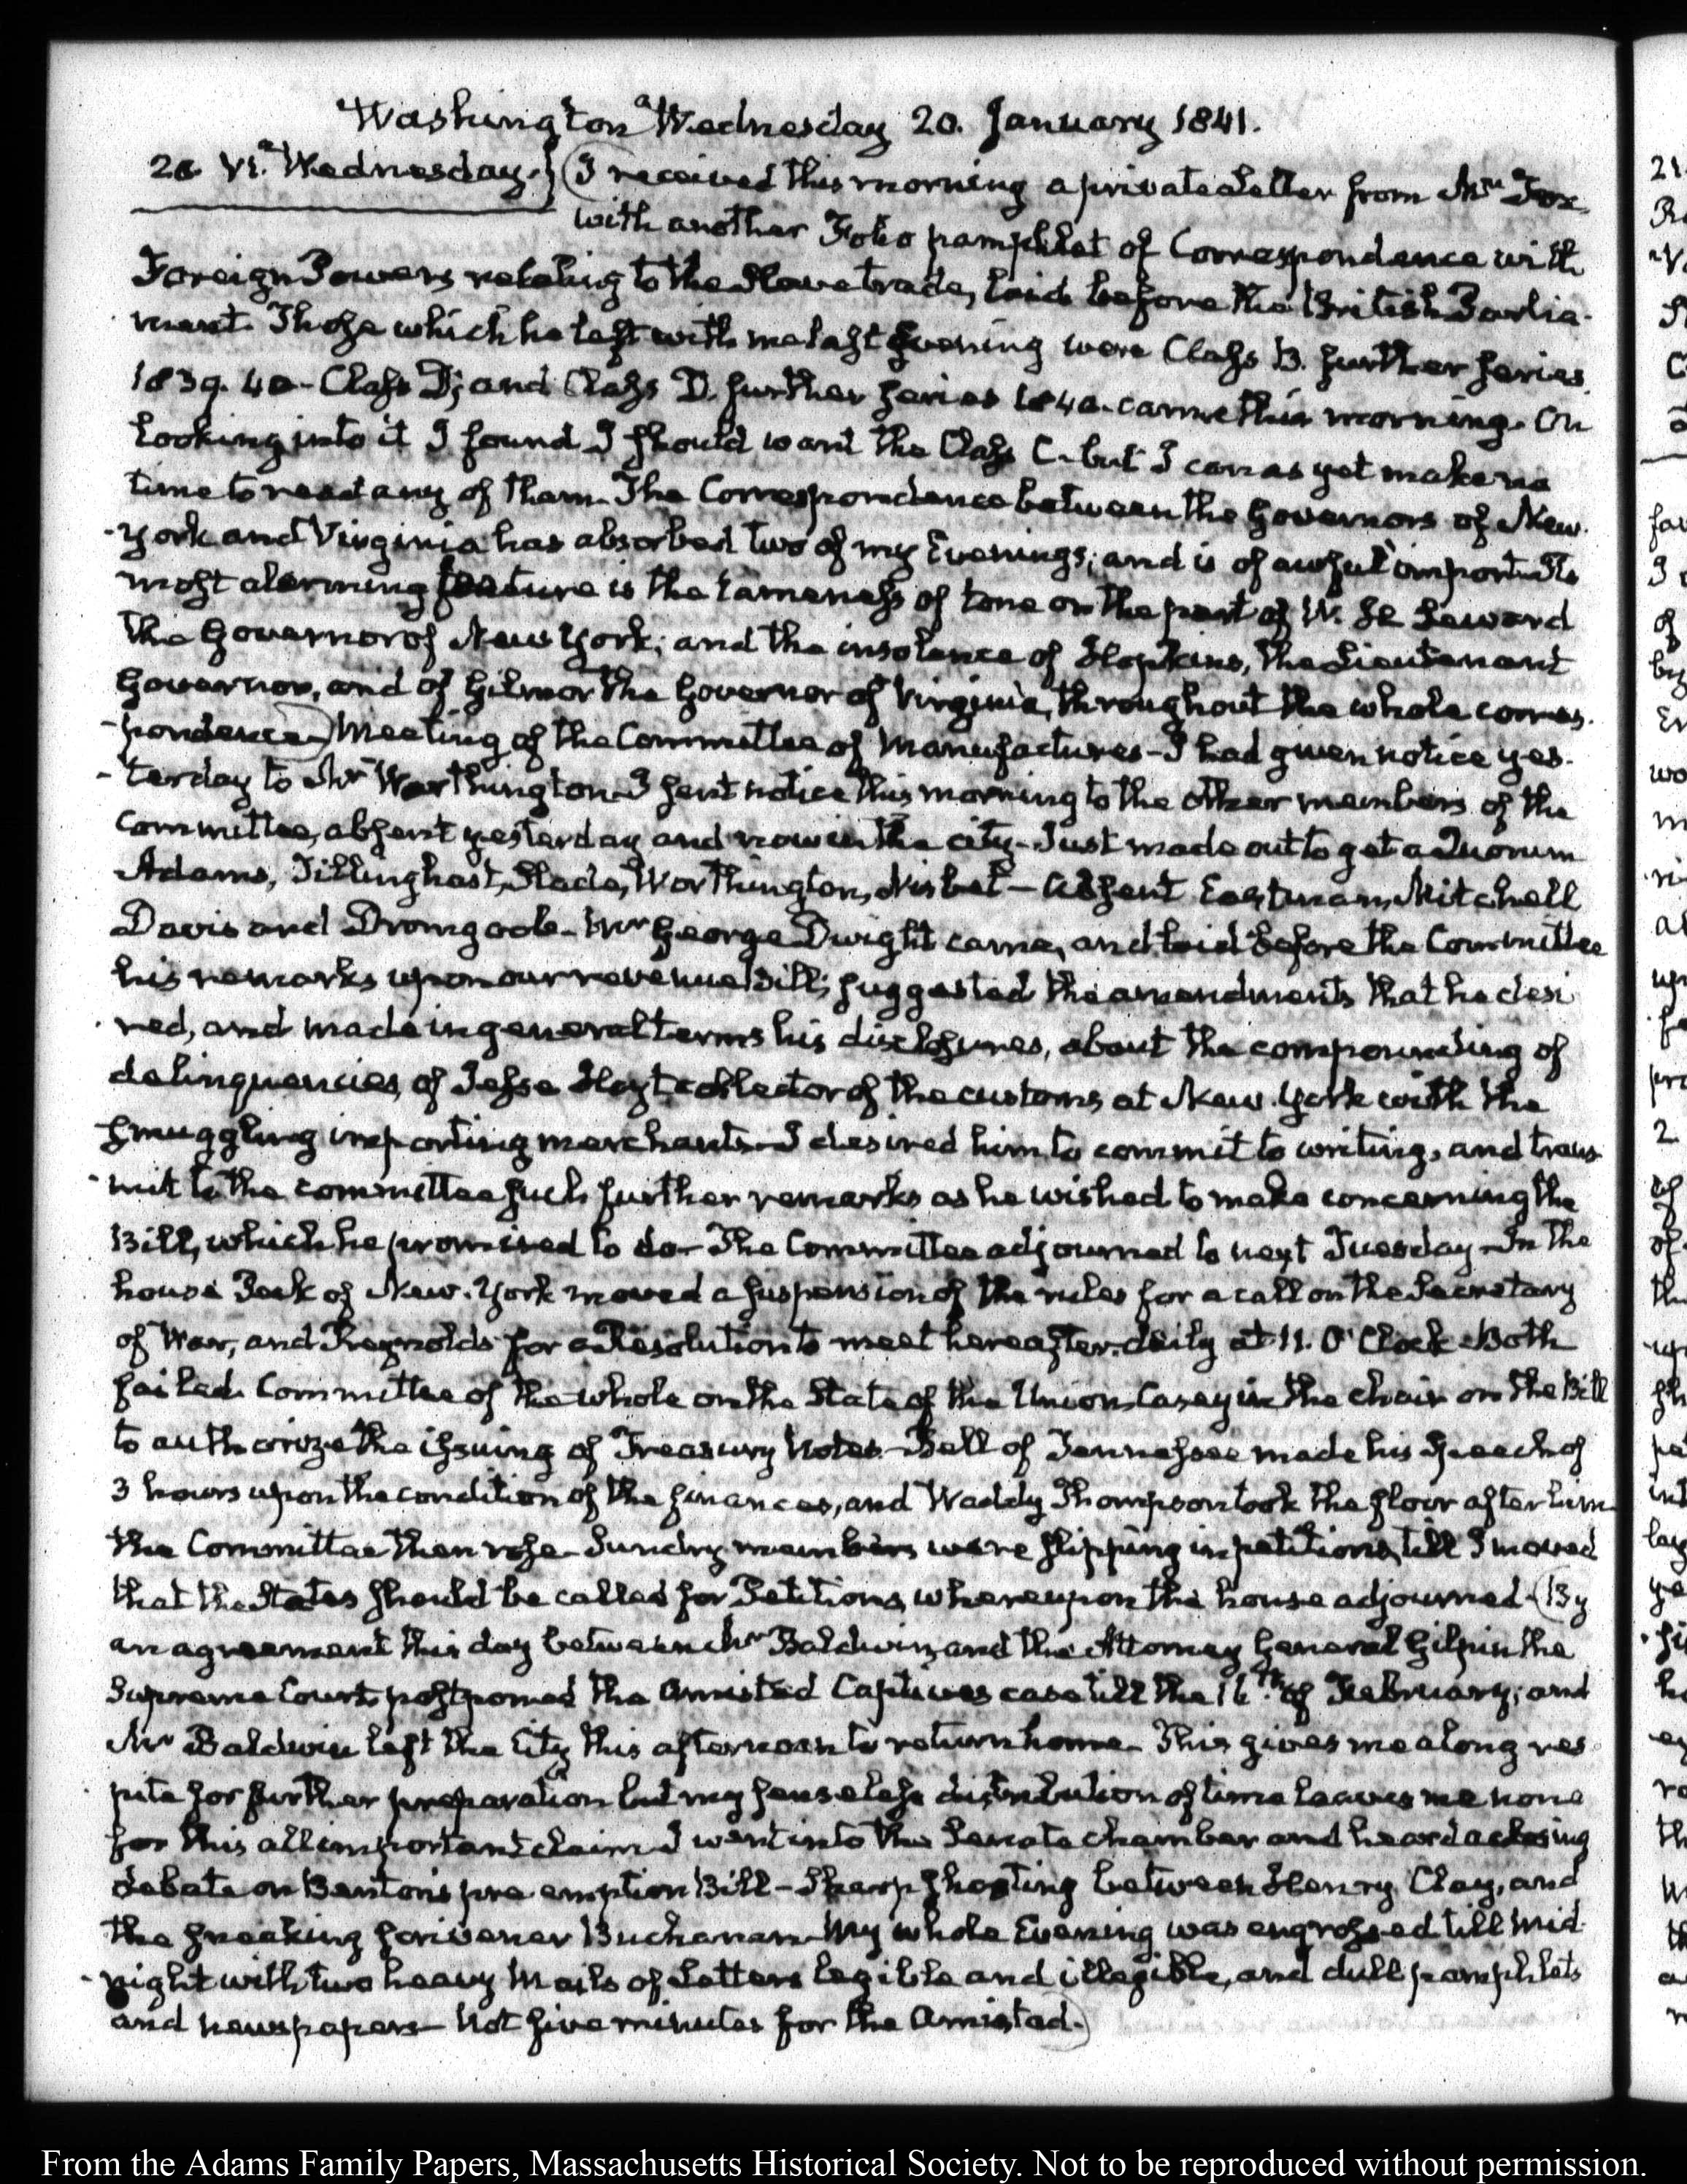 Washington Wednesday 20. January 1841.
20. VI. Wednesday. } (I received this morning a private Letter from Mr Fox
with another Folio pamphlet of Correspondence with
Foreign Powers relating to the Slave trade, laid before the British Parlia-
ment. Those which he left with me last Evening were Class B. further series
1839. 40 - Class D; and Class D. further series 1840. came this morning. On
looking into it I found I should want the Class C - but I can as yet make no
time to read any of them. The Correspondence between the Governors of New-
-York and Virginia has absorbed two of my Evenings; and is of awful import. Its
most alarming feature is the tameness of tone on the part of W. H. Seward
the Governor of New York; and the insolence of Hopkins, the Lieutenant
Governor, and of Gilmer the Governor of Virginia, throughout the whole corres-
-pondence) Meeting of the Committee of Manufactures - I had given notice yes-
-terday to Mr Worthington. I sent notice this morning to the other members of the
Committee, absent yesterday and now in the city - Just made out to get a Quorum
Adams, Tillinghast, Slade, Worthington, Nisbet - Absent Eastman, Mitchell
Davis and Dromgoole - Mr George Dwight came, and laid before the Committee
his remarks upon our revenue Bill; suggested the amendments that he desi
red, and made in general terms his disclosures, about the compounding of
delinquencies, of Jesse Hoyt collector of the customs at New-York with the
smuggling importing merchants - I desired him to commit to writing, and trans-
-mit to the committee such further remarks as he wished to make concerning the
Bill, which he promised to do - The Committee adjourned to next Tuesday - In the
house Peck of New-York moved a suspension of the rules for a call on the Secretary
of War, and Reynolds for a Resolution to meet hereafter daily at 11. O'Clock - Both
failed. Committee of the whole on the State of the Union, Casey in the chair on the Bill
to authorize the issuing of Treasury Notes - Bell of Tennessee made his speech of
3 hours upon the condition of the finances, and Waddy Thompson took the floor after him
the Committee then rose - Sundry members were slipping in petitions, till I moved
that the States should be called for Petitions, whereupon the house adjourned - (By
an agreement this day between Mr Baldwin and the Attorney General Gilpin the
Supreme Court postponed the Amistad Captives case till the 16th of February; and
Mr Baldwin left the City this afternoon to return home - This gives me a long res-
pite for further preparation but my senseless distribution of time leaves me none
for this all important claim. I went into the Senate chamber and heard a closing
debate on Benton's pre emption Bill - Sharp shooting between Henry Clay, and
the sneaking scrivener Buchanan - My whole Evening was engrossed till Mid-
-night with two heavy Mails of Letters legible and illegible, and dull pamphlets
and newspapers - Not five minutes for the Amistad.)
From the Adams Family Papers, Massachusetts Historical Society. Not to be reproduced without permission.